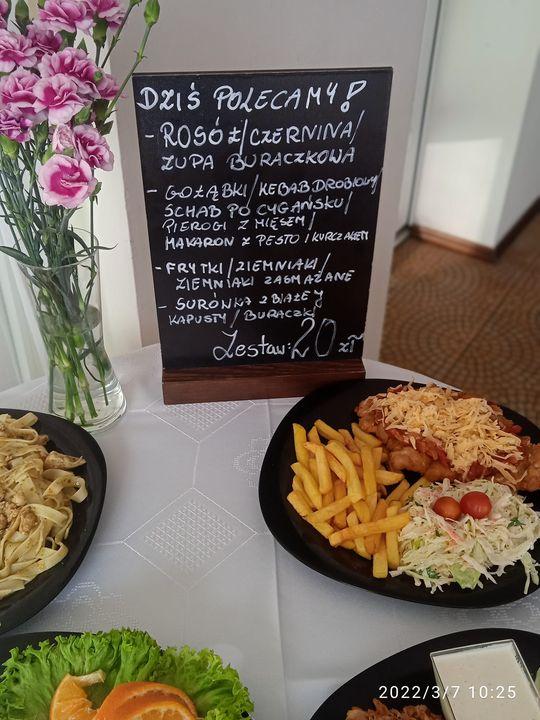 DZIŚ POLECAMY!
- ROSÓŁ/CZERNINA/
ZUPA BURACZKOWA
- GOŁĄBKI/KEBAB DROBIOWY/
SCHAB PO CYGAŃSKU/
PIEROGI Z MIĘSEM/
MAKARON Z PESTO I KURCZAKIEM
- FRYTKI/ZIEMNIAKI/
ZIEMNIAKI ZASMAŻANE
- SURÓWKA Z BIAŁEJ
KAPUSTY/BURACZKI
Zestaw: 20 zł
2022/3/7 10:25